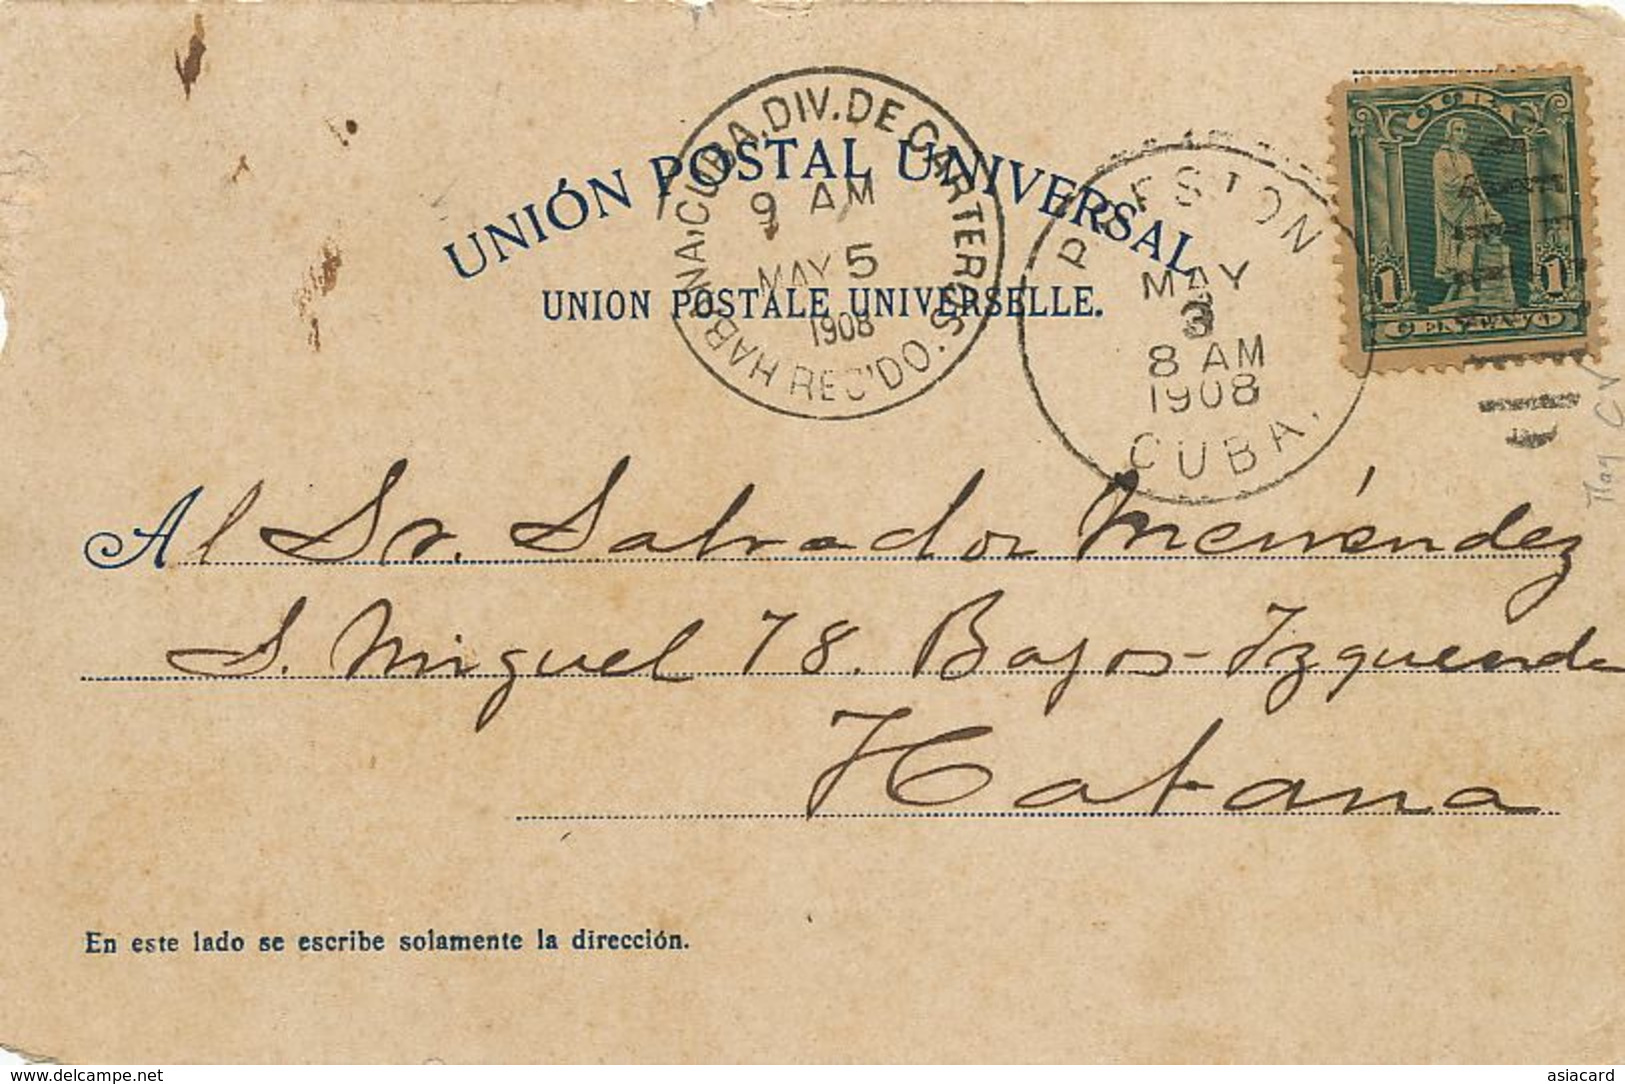 UNIÓN POSTAL UNIVERSAL
UNION POSTALE UNIVERSELLE.
HABANA, CUBA. DIV. DE CARTEROS. REC'DO.
9 AM
MAY 5
1908
PRESTON
MAY
3
8 AM
1908
CUBA.
1 1
Al Sr. Salvador Menéndez
S. Miguel 78. Bajos-Izquierda
Habana
En este lado se escribe solamente la dirección.
delcampe.net
asiacard